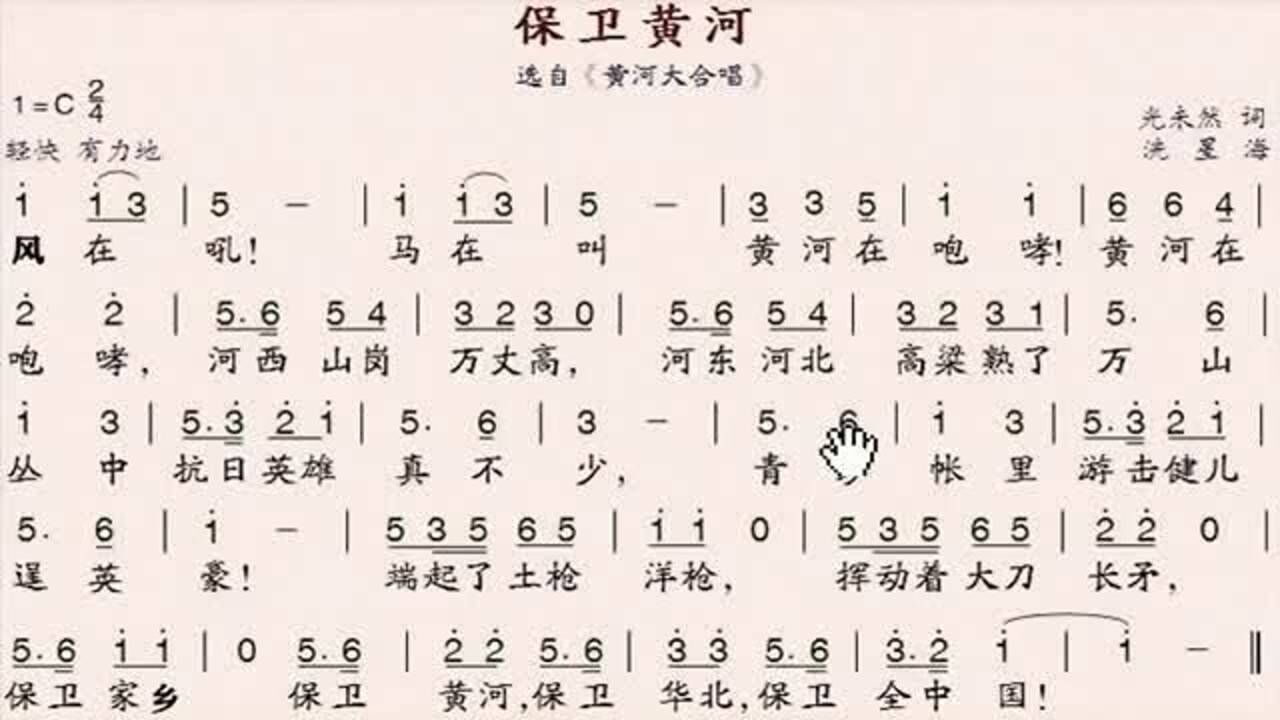 保卫黄河
选自《黄河大合唱》
1=C 2/4
光未然 词
轻快 有力地
冼 星 海
i i 3 | 5 － | i i 3 | 5 － | 3 3 5 | i i | 6 6 4 |
风 在 吼! 马 在 叫 黄 河 在 咆 哮! 黄 河 在
2̇ 2̇ | 5. 6 5 4 | 3 2 3 0 | 5. 6 5 4 | 3 2 3 1 | 5. 6 |
咆 哮, 河 西 山 岗 万 丈 高, 河 东 河 北 高 梁 熟 了 万 山
i 3 | 5. 3̇ 2̇ i | 5. 6 | 3 － | 5. 6 | i 3 | 5. 3̇ 2̇ i |
丛 中 抗 日 英 雄 真 不 少, 青 帐 里 游 击 健 儿
5. 6 | i － | 5 3 5 6 5 | i i 0 | 5 3 5 6 5 | 2̇ 2̇ 0 |
逞 英 豪! 端 起 了 土 枪 洋 枪, 挥 动 着 大 刀 长 矛,
5. 6 i i | 0 5. 6 | 2̇ 2̇ 5. 6 | 3̇ 3̇ 5. 6 | 3̇. 2̇ i | i － ‖
保 卫 家 乡 保 卫 黄 河, 保 卫 华 北, 保 卫 全 中 国!